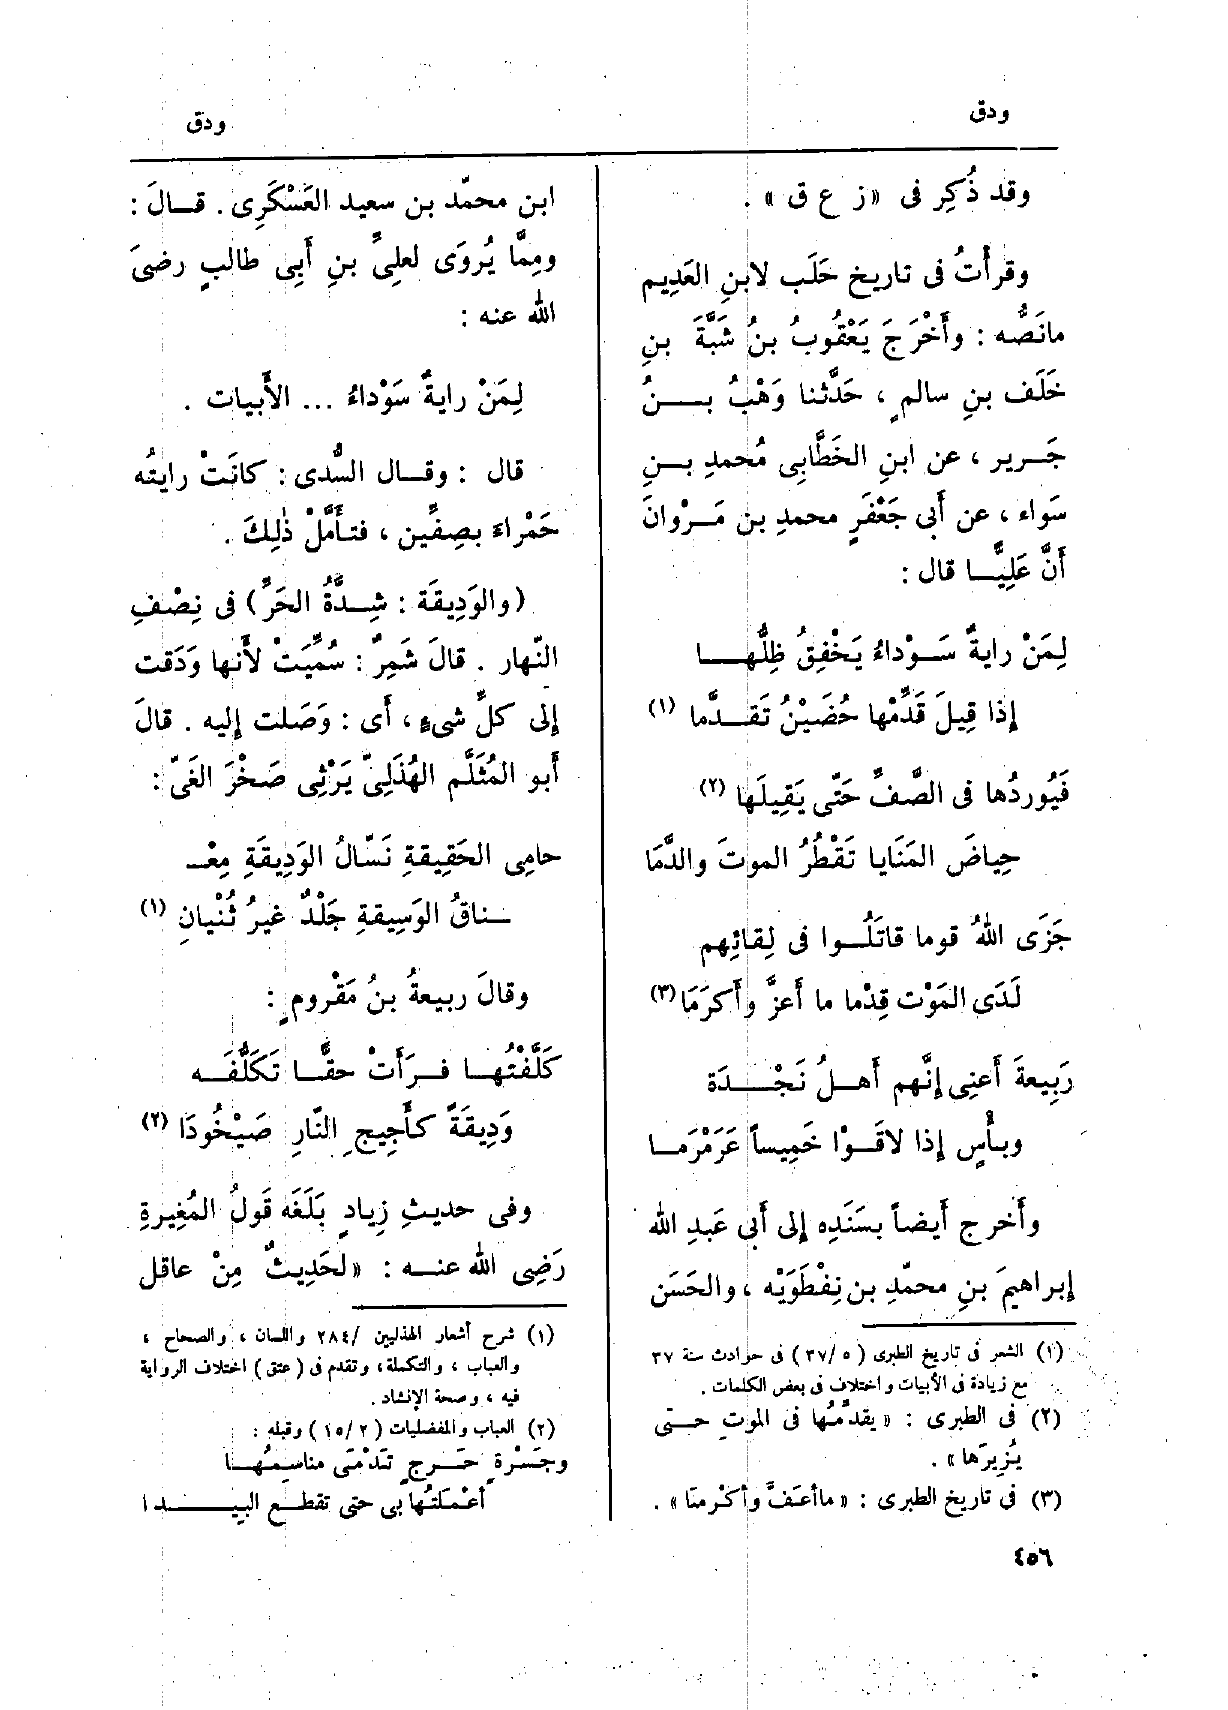 ودق
ودق
وقد ذُكِر فى «ز ع ق» .
وقرأتُ فى تاريخ حَلَب لابنِ العَدِيم
مانَصُّه : وأَخْرَجَ يَعْقُوبُ بنُ شَبَّةَ بنِ
خَلَف بنِ سالمٍ ، حَدَّثنا وَهْبُ بــنُ
جَــرير ، عن ابنِ الخَطَّابِى مُحمدِ بــنِ
سَواء ، عن أَبى جَعْفَرٍ محمدِ بن مَــرْوانَ
أَنَّ عَلِيًّــا قال :
لِمَنْ رايةٌ سَــوْداءُ يَخْفِقُ ظِلُّهــا
إذا قِيلَ قَدِّمْها حُضَيْنُ تَقَــدَّما (١)
فَيُوردُها فى الصَّفِّ حَتّى يَقِيلَها (٢)
حِياضَ المَنَايا تَقْطُرُ الموتَ والدَّمَا
جَزَى اللهُ قوما قاتَلُــوا فى لِقائِهم
لَدَى المَوْت قِدْما ما أَعزَّ وأَكرَمَا (٣)
رَبِيعةَ أَعنِى إنَّهم أَهلُ نَجْــدَة
وبأْسٍ إذا لاقَــوْا خَمِيساً عَرَمْرَمــا
وأَخرج أَيضاً بسَنَدِه إلى أَبى عَبدِ الله
إبراهيمَ بنِ محمّدِ بن نِفْطَوَيْه ، والحَسَن
(١) الشعر فى تاريخ الطبرى (٥ /٣٧) فى حوادث سنة ٣٧
مع زيادة فى الأبيات واختلاف فى بعض الكلمات .
(٢) فى الطبرى : «يقدِّمُها فى الموتِ حــتى
يُزِيرَها» .
(٣) فى تاريخ الطبرى : «ماأعَفَّ وأكْرمَا» .
٤٥٦
ابن محمّد بن سعيد العَسْكَرِى . قــالَ :
ومِمَّا يُروَى لعلىِّ بنِ أَبِى طالبٍ رضىَ
الله عنه :
لِمَنْ رايةٌ سَوْداءُ ... الأَبيات .
قال : وقــال السُّدى : كانَتْ رايتُه
حَمْراءَ بصِفِّين ، فتأَمَّلْ ذٰلِكَ .
(والوَدِيقَة : شِــدَّةُ الحَرِّ) فى نِصْفِ
النّهار . قالَ شَمِرٌ : سُمِّيَتْ لأَنها وَدَقت
إلى كلِّ شىءٍ ، أى : وَصَلت إليه . قالَ
أَبو المُثَلَّم الهُذَلِىّ يَرْثِى صَخْرَ الغَىّ :
حامِى الحَقِيقةِ نَسّالُ الوَدِيقَةِ مِعْــ
ــناقُ الوَسِيقةِ جَلْدٌ غيرُ ثُنْيانِ (١)
وقالَ ربيعةُ بنُ مَقْرومٍ :
كَلَّفْتُهــا فــرَأَتْ حقًّــا تَكَلُّفَــه
وَدِيقَةً كأَجِيجِ النّارِ صَيْخُودَا (٢)
وفى حديثِ زِيادٍ بَلَغَه قَولُ المُغِيرةِ
رَضِى الله عنــه : «لحَدِيثٌ مِنْ عاقل
(١) شرح أشعار الهذليين /٢٨٤ واللسان ، والصحاح ،
والعباب ، والتكملة ، وتقدم فى (عتق) اختلاف الرواية
فيه ، وصحة الإنشاد .
(٢) العباب والمفضليات (٢ /١٥) وقبله :
وجَسْرةٍ حَــرجٍ تَدْمَى مناسِمُهــا
أعْمَلتُها بى حتى تقطــع البيــدا